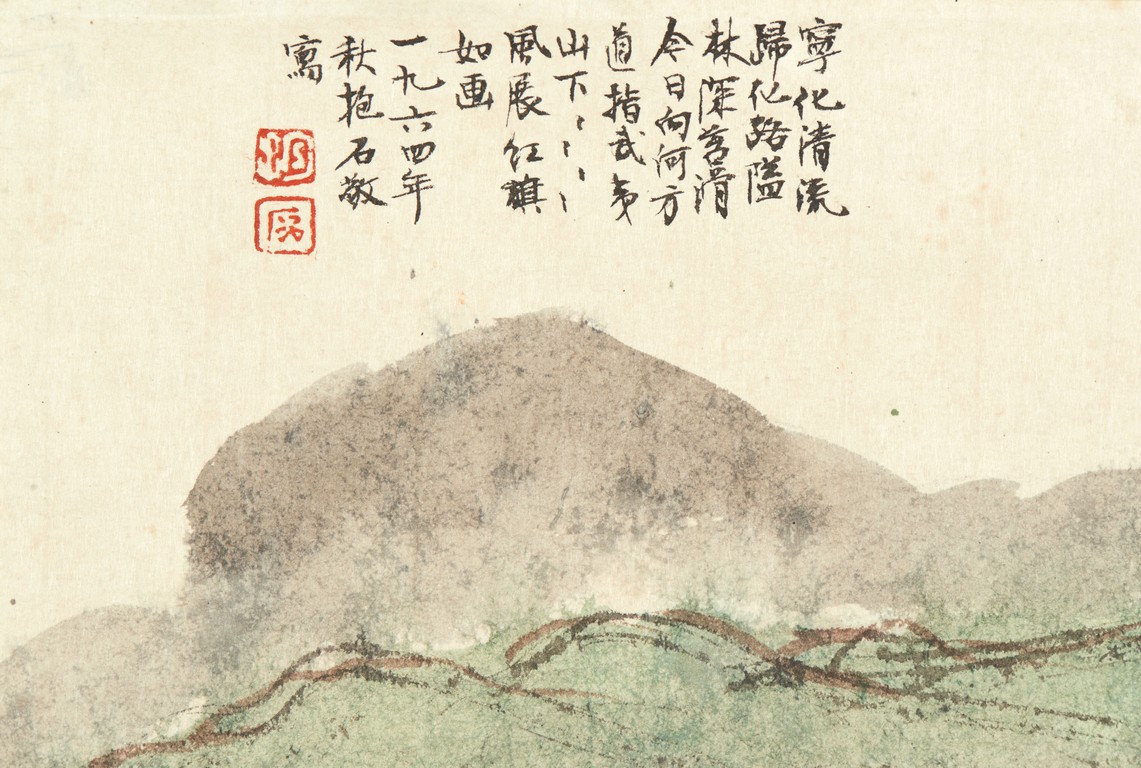 寧化清流
歸化路隘
林深苔滑
今日向何方
道指武夷
山下、、、、
風展红旗
如画
一九六四年
秋抱石敬
寫